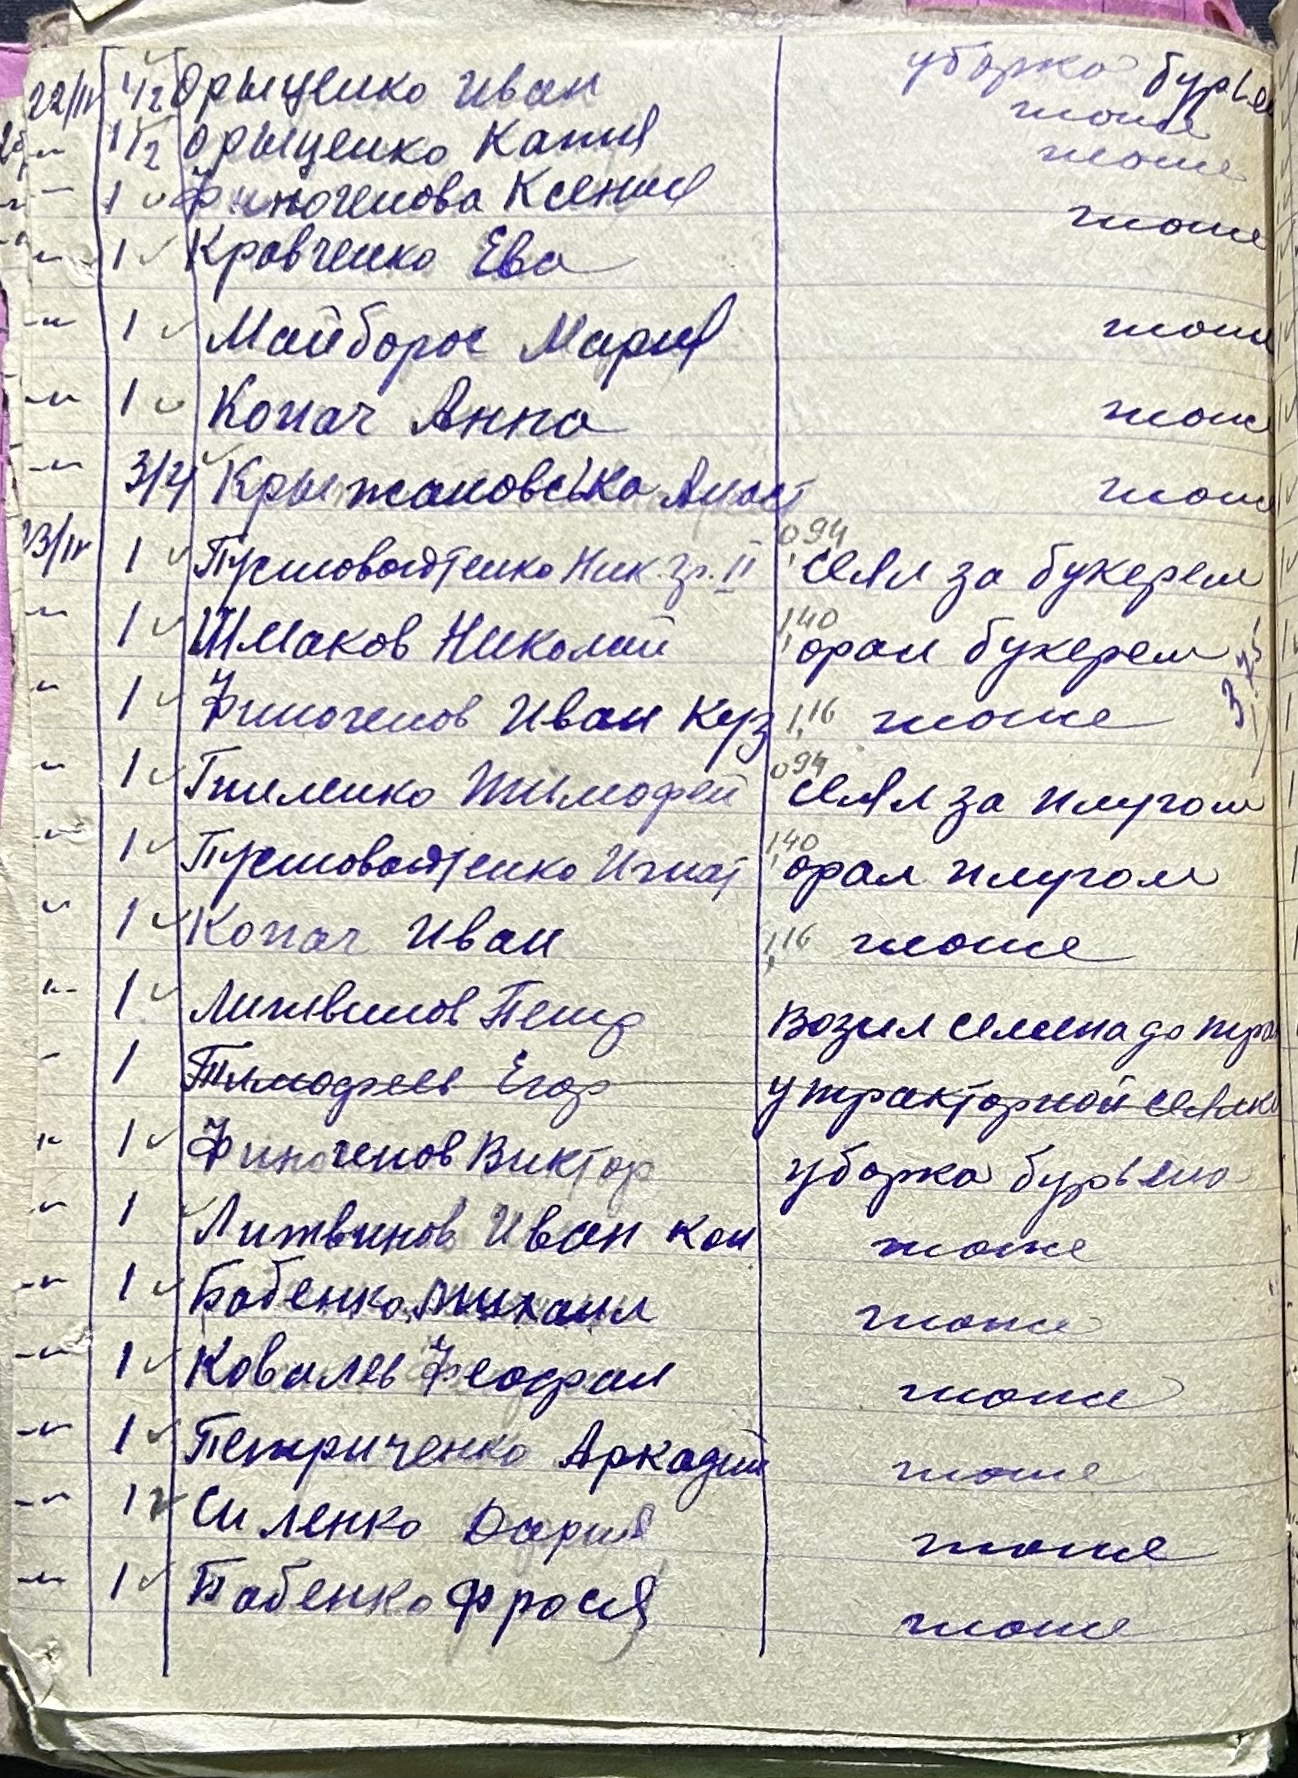 22/IV 1/2 Орыщенко Иван уборка бурья
-"- 1/2 Орыщенко Катя тоже
-"- 1 Финогенова Ксения тоже
-"- 1 Кравченко Ева тоже
-"- 1 Майборос Мария тоже
-"- 1 Копач Анна тоже
-"- 3/4 Крыжановська Анаст тоже
23/IV 1 Пустовойтенко Ник. гр. II 0,94 сеял за букерем
-"- 1 Шмаков Николай 1,40 орал букерем
-"- 1 Финогенов Иван Куз 1,16 тоже
-"- 1 Гниленко Тимофей 0,94 сеял за плугом
-"- 1 Пустовойтенко Игнат 1,40 орал плугом
-"- 1 Копач Иван 1,16 тоже
-"- 1 Литвинов Петр возил семена до
-"- 1 Тимофеев Егор у тракторной сеялки
-"- 1 Финогенов Виктор уборка бурьяна
-"- 1 Литвинов Иван Кон тоже
-"- 1 Бабенко Михаил тоже
-"- 1 Ковалев Феофан тоже
-"- 1 Петриченко Аркадий тоже
-"- 1 Силенко Дария тоже
-"- 1 Бабенко Фрося тоже